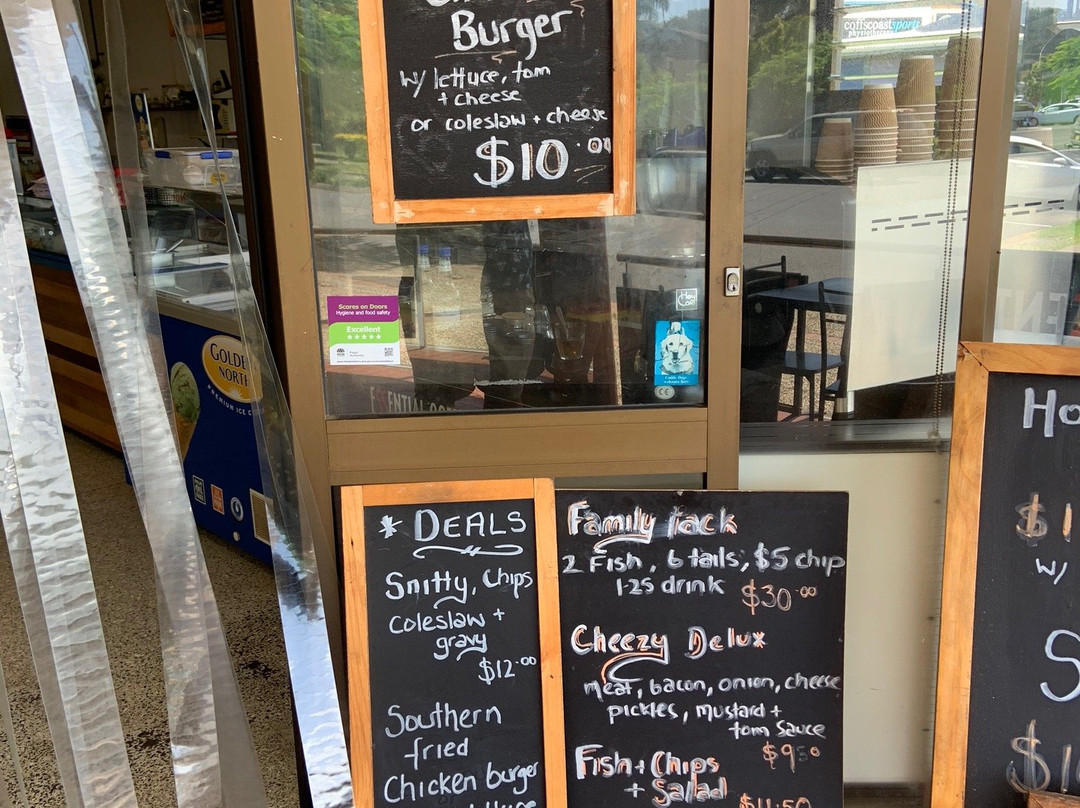 Burger
w/ lettuce, tom
+ cheese
or coleslaw + cheese
$10.00
coffscoastsports
Scores on Doors
Hygiene and food safety
Excellent
GOLDE
NORTH
PREMIUM ICE C
* DEALS
Snitty, Chips
coleslaw +
gravy
$12.00
Southern
fried
Chicken burger
Family Pack
2 Fish, 6 tails, $5 chip
1.25 drink
$30.00
Cheezy Delux
meat, bacon, onion, cheese
pickles, mustard +
tom Sauce
$9.50
Fish + Chips
+ Salad
$11.50
Ho
$1
w/
S
$1